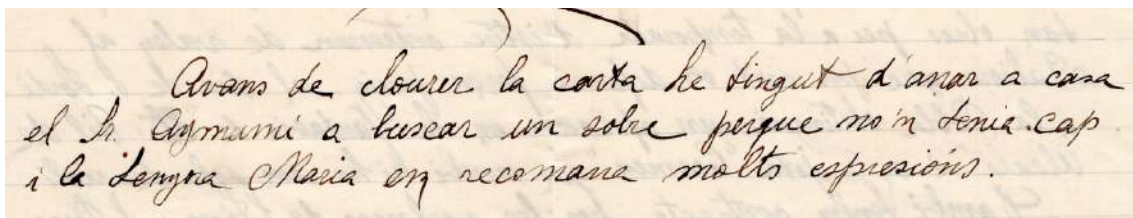 Avans de clourer la carta he tingut d'anar a casa
el Sr. Aymamí a buscar un sobre perque no'n tenia cap
i la Senyora Maria em recomana molts espresións.